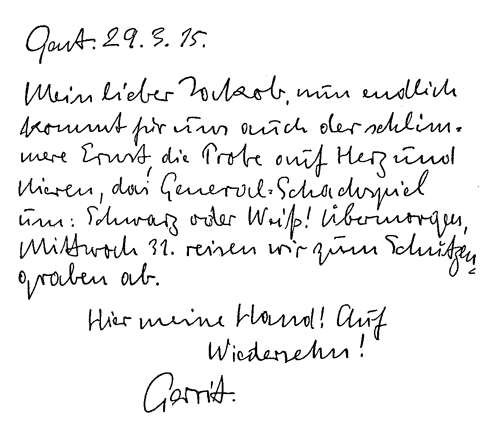 Gent. 29.3.15.
Mein lieber Jakob, nun endlich
kommt für uns auch der schlim-
mere Ernst, die Probe auf Herz und
Nieren, das General-Schachspiel
um: Schwarz oder Weiß! Übermorgen,
Mittwoch 31. reisen wir zum Schützen
graben ab.
Hier meine Hand! Auf
Wiedersehn!
Gerrit.